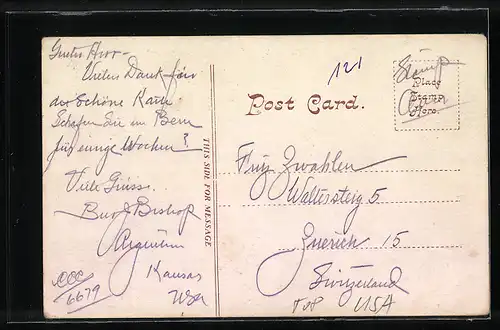 Guter Herr –
Vielen Dank für
der Schöne Karte.
Schafen Sie im Bern
für einige Wochen?
Viele Grüss..
Bishop
Kansas
USA
CCC
6679
THIS SIDE FOR MESSAGE
121
Post Card.
Place
Stamp
Here.
Zwahlen
Waltersteig 5
Zuerich 15
Switzerland
USA